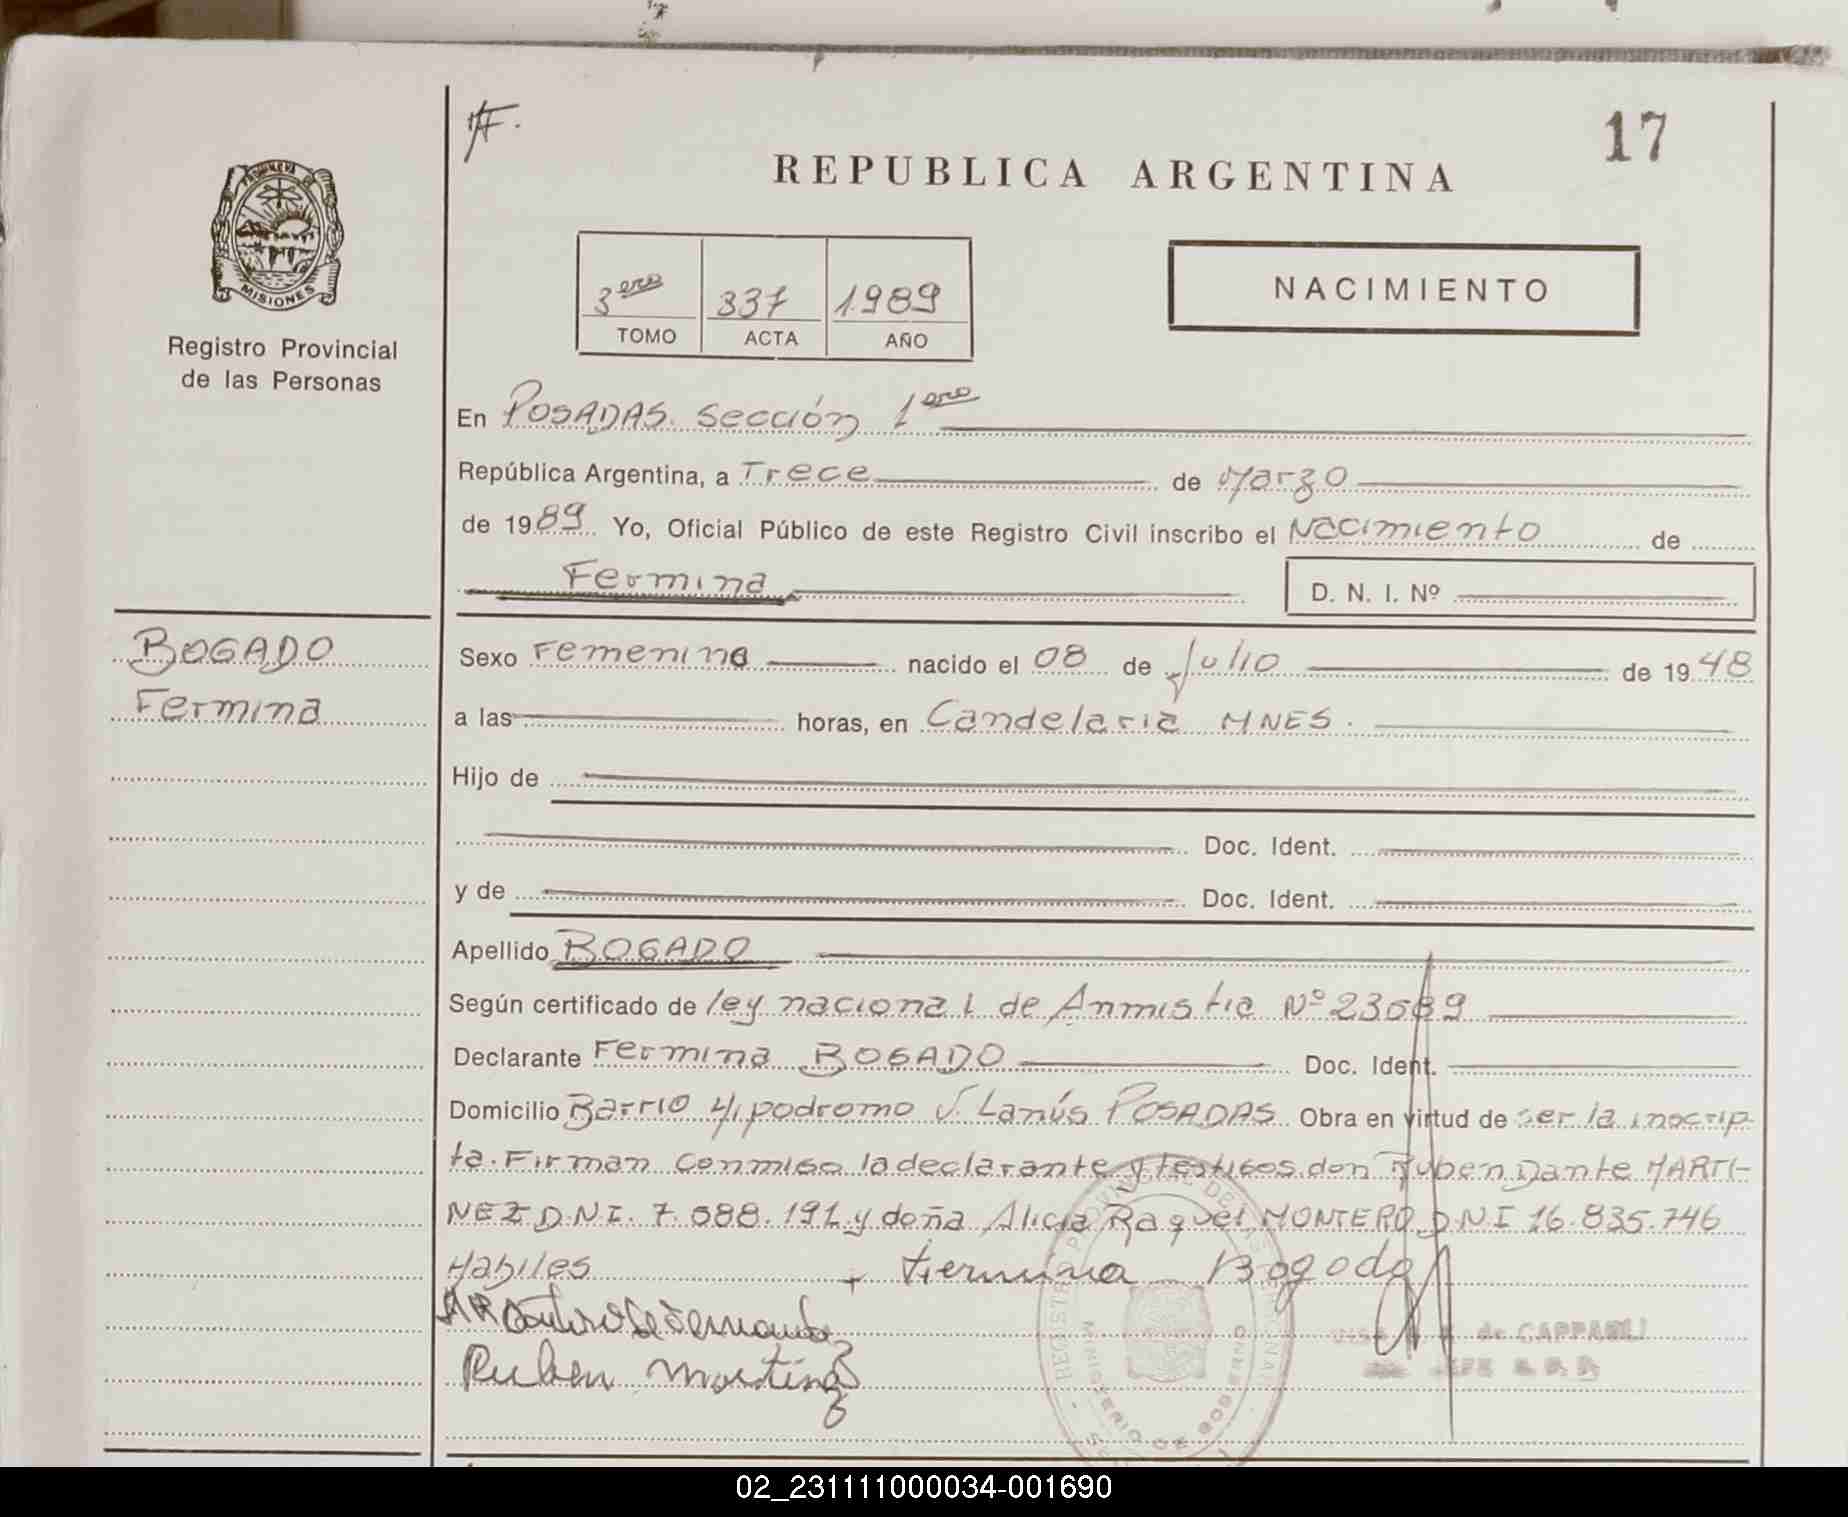 17
REPUBLICA ARGENTINA
PROVINCIA DE
MISIONES
Registro Provincial
de las Personas
NACIMIENTO
3ero 337 1.989
TOMO ACTA AÑO
En POSADAS. sección 1ero
República Argentina, a Trece de Marzo
de 1989 Yo, Oficial Público de este Registro Civil inscribo el Nacimiento de
Fermina D. N. I. Nº
BOGADO
Fermina
Sexo Femenino nacido el 08 de Julio de 1948
a las horas, en Candelaria MNES.
Hijo de
Doc. Ident.
y de Doc. Ident.
Apellido BOGADO
Según certificado de ley nacional de Anmistia Nº 23689
Declarante Fermina BOGADO Doc. Ident.
Domicilio Barrio Hipodromo V. Lanús POSADAS. Obra en virtud de ser la inscrip
ta. Firman conmigo la declarante y testigos don Ruben Dante MARTI-
NEZ D.N.I. 7.688.191 y doña Alicia Raquel MONTERO D.N.I 16.835.746
Habiles Fermina Bogado
Ruben Martinez
REGISTRO PROVINCIAL DE LAS PERSONAS
MINISTERIO DE GOBIERNO
de CAPPARELLI
02_231111000034-001690